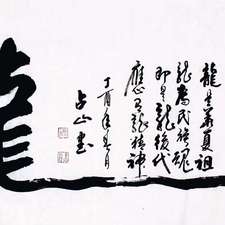 龍是華夏祖
龍為民族魂
即是龍後代
應有龍精神
丁酉年春月
占山書